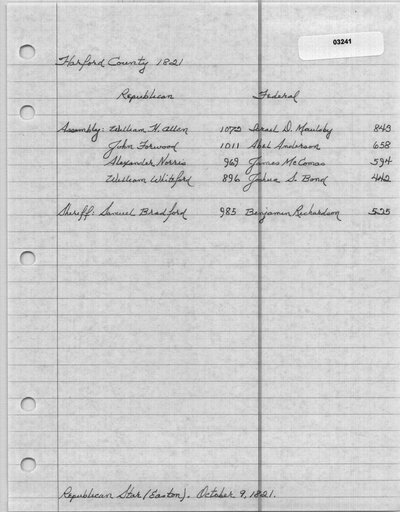 03241
Harford County 1821
Republican Federal
Assembly: William H. Allen 1075 Israel D. Maulsby 843
John Forwood 1011 Abel Anderson 658
Alexander Norris 969 James McComas 594
William Whiteford 896 Joshua S. Bond 442
Sheriff: Samuel Bradford 985 Benjamin Richardson 525
Republican Star (Easton). October 9, 1821.